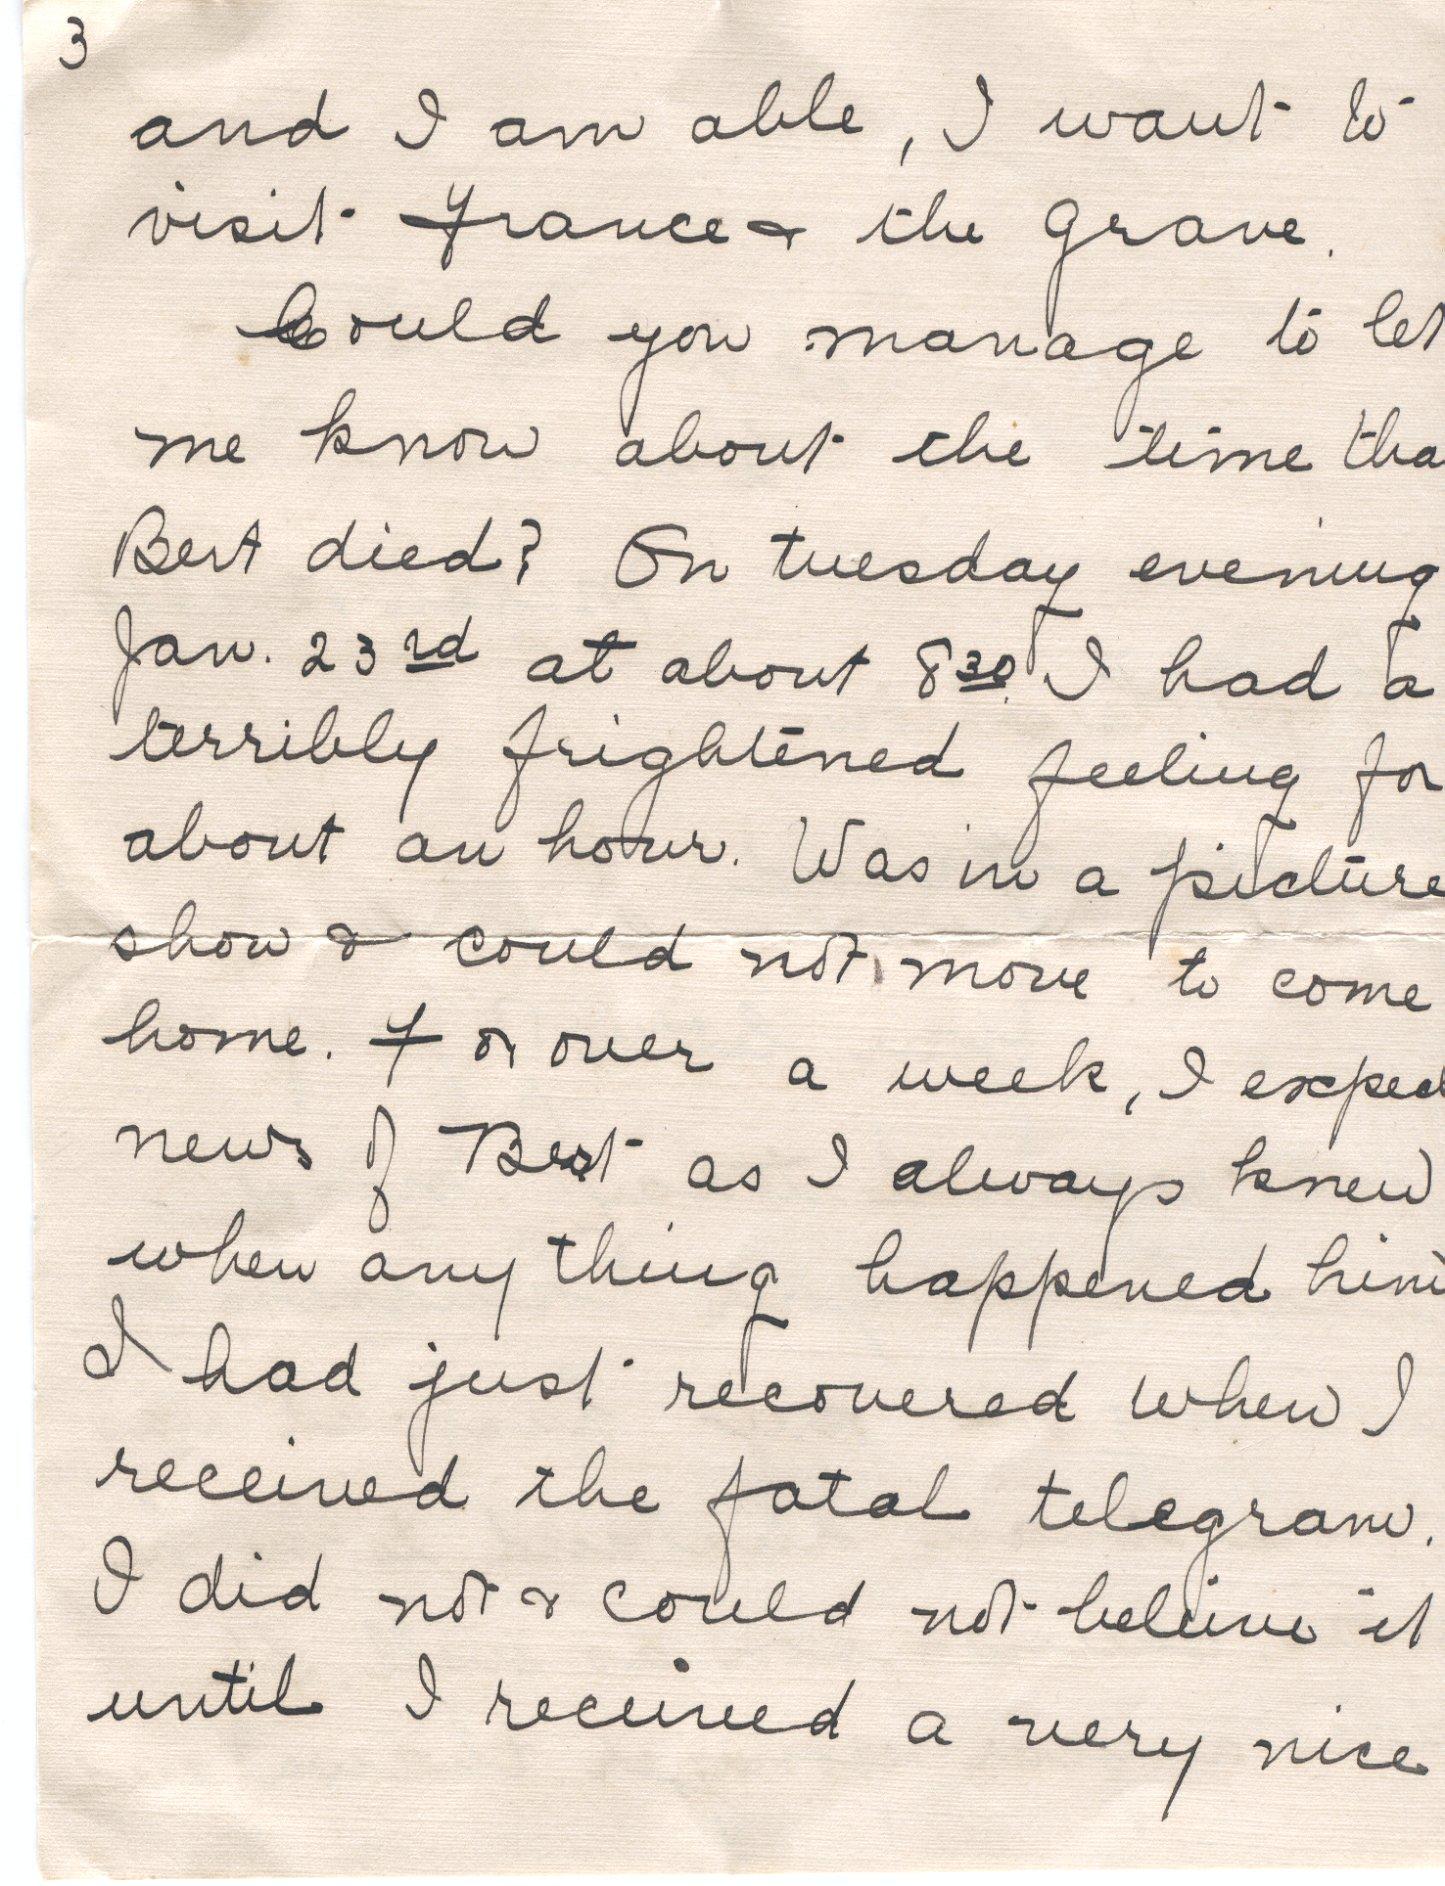 3
and I am able, I want to
visit France & the grave.
Could you manage to let
me know about the time tha
Bert died? On tuesday evening
Jan. 23rd at about 8 30. I had a
terribly frightened feeling for
about an hour. Was in a picture
show & could not move to come
home. For over a week, I expect
news of Bert as I always knew
when any thing happened him
I had just recovered when I
received the fatal telegram.
I did not & could not believe it
until I received a very nice